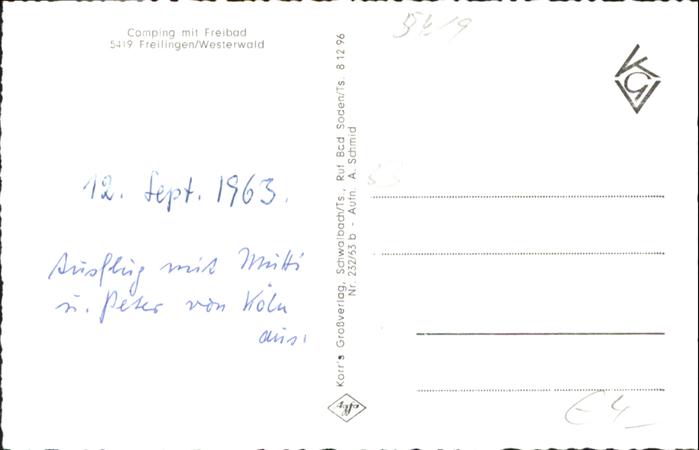 Camping mit Freibad
5419 Freilingen/Westerwald
12. Sept. 1963.
Ausflug mit Mutti
u. Peter von Köln
aus.
Korr's Großverlag, Schwalbach/Ts., Ruf Bad Soden/Ts. 8 12 96
Nr. 232/63 b - Aufn. A. Schmid
Agfa
5419
KGV
E 4